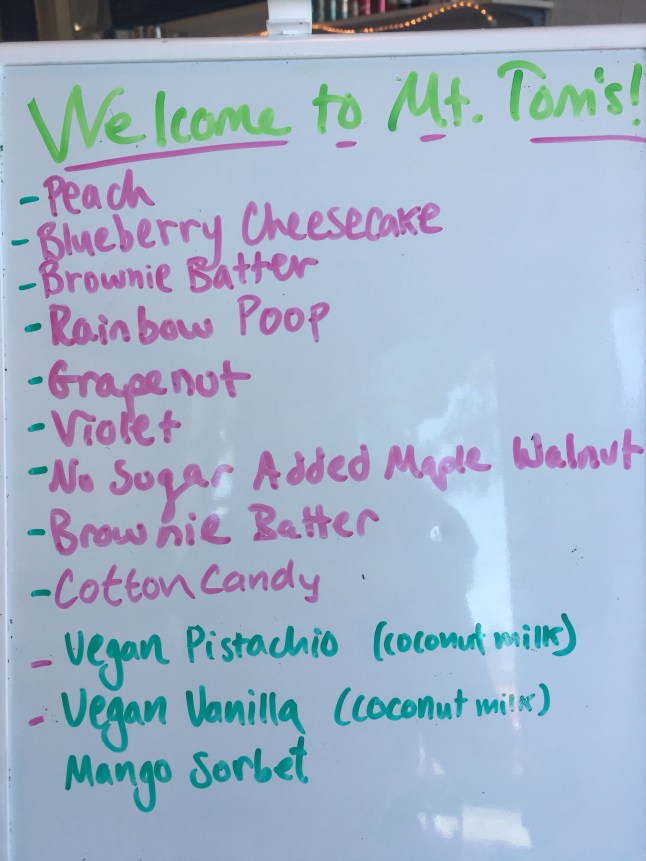 Welcome to Mt. Tom's!
- Peach
- Blueberry Cheesecake
- Brownie Batter
- Rainbow Poop
- Grapenut
- Violet
- No Sugar Added Maple Walnut
- Brownie Batter
- Cotton Candy
- Vegan Pistachio (coconut milk)
- Vegan Vanilla (coconut milk)
Mango Sorbet